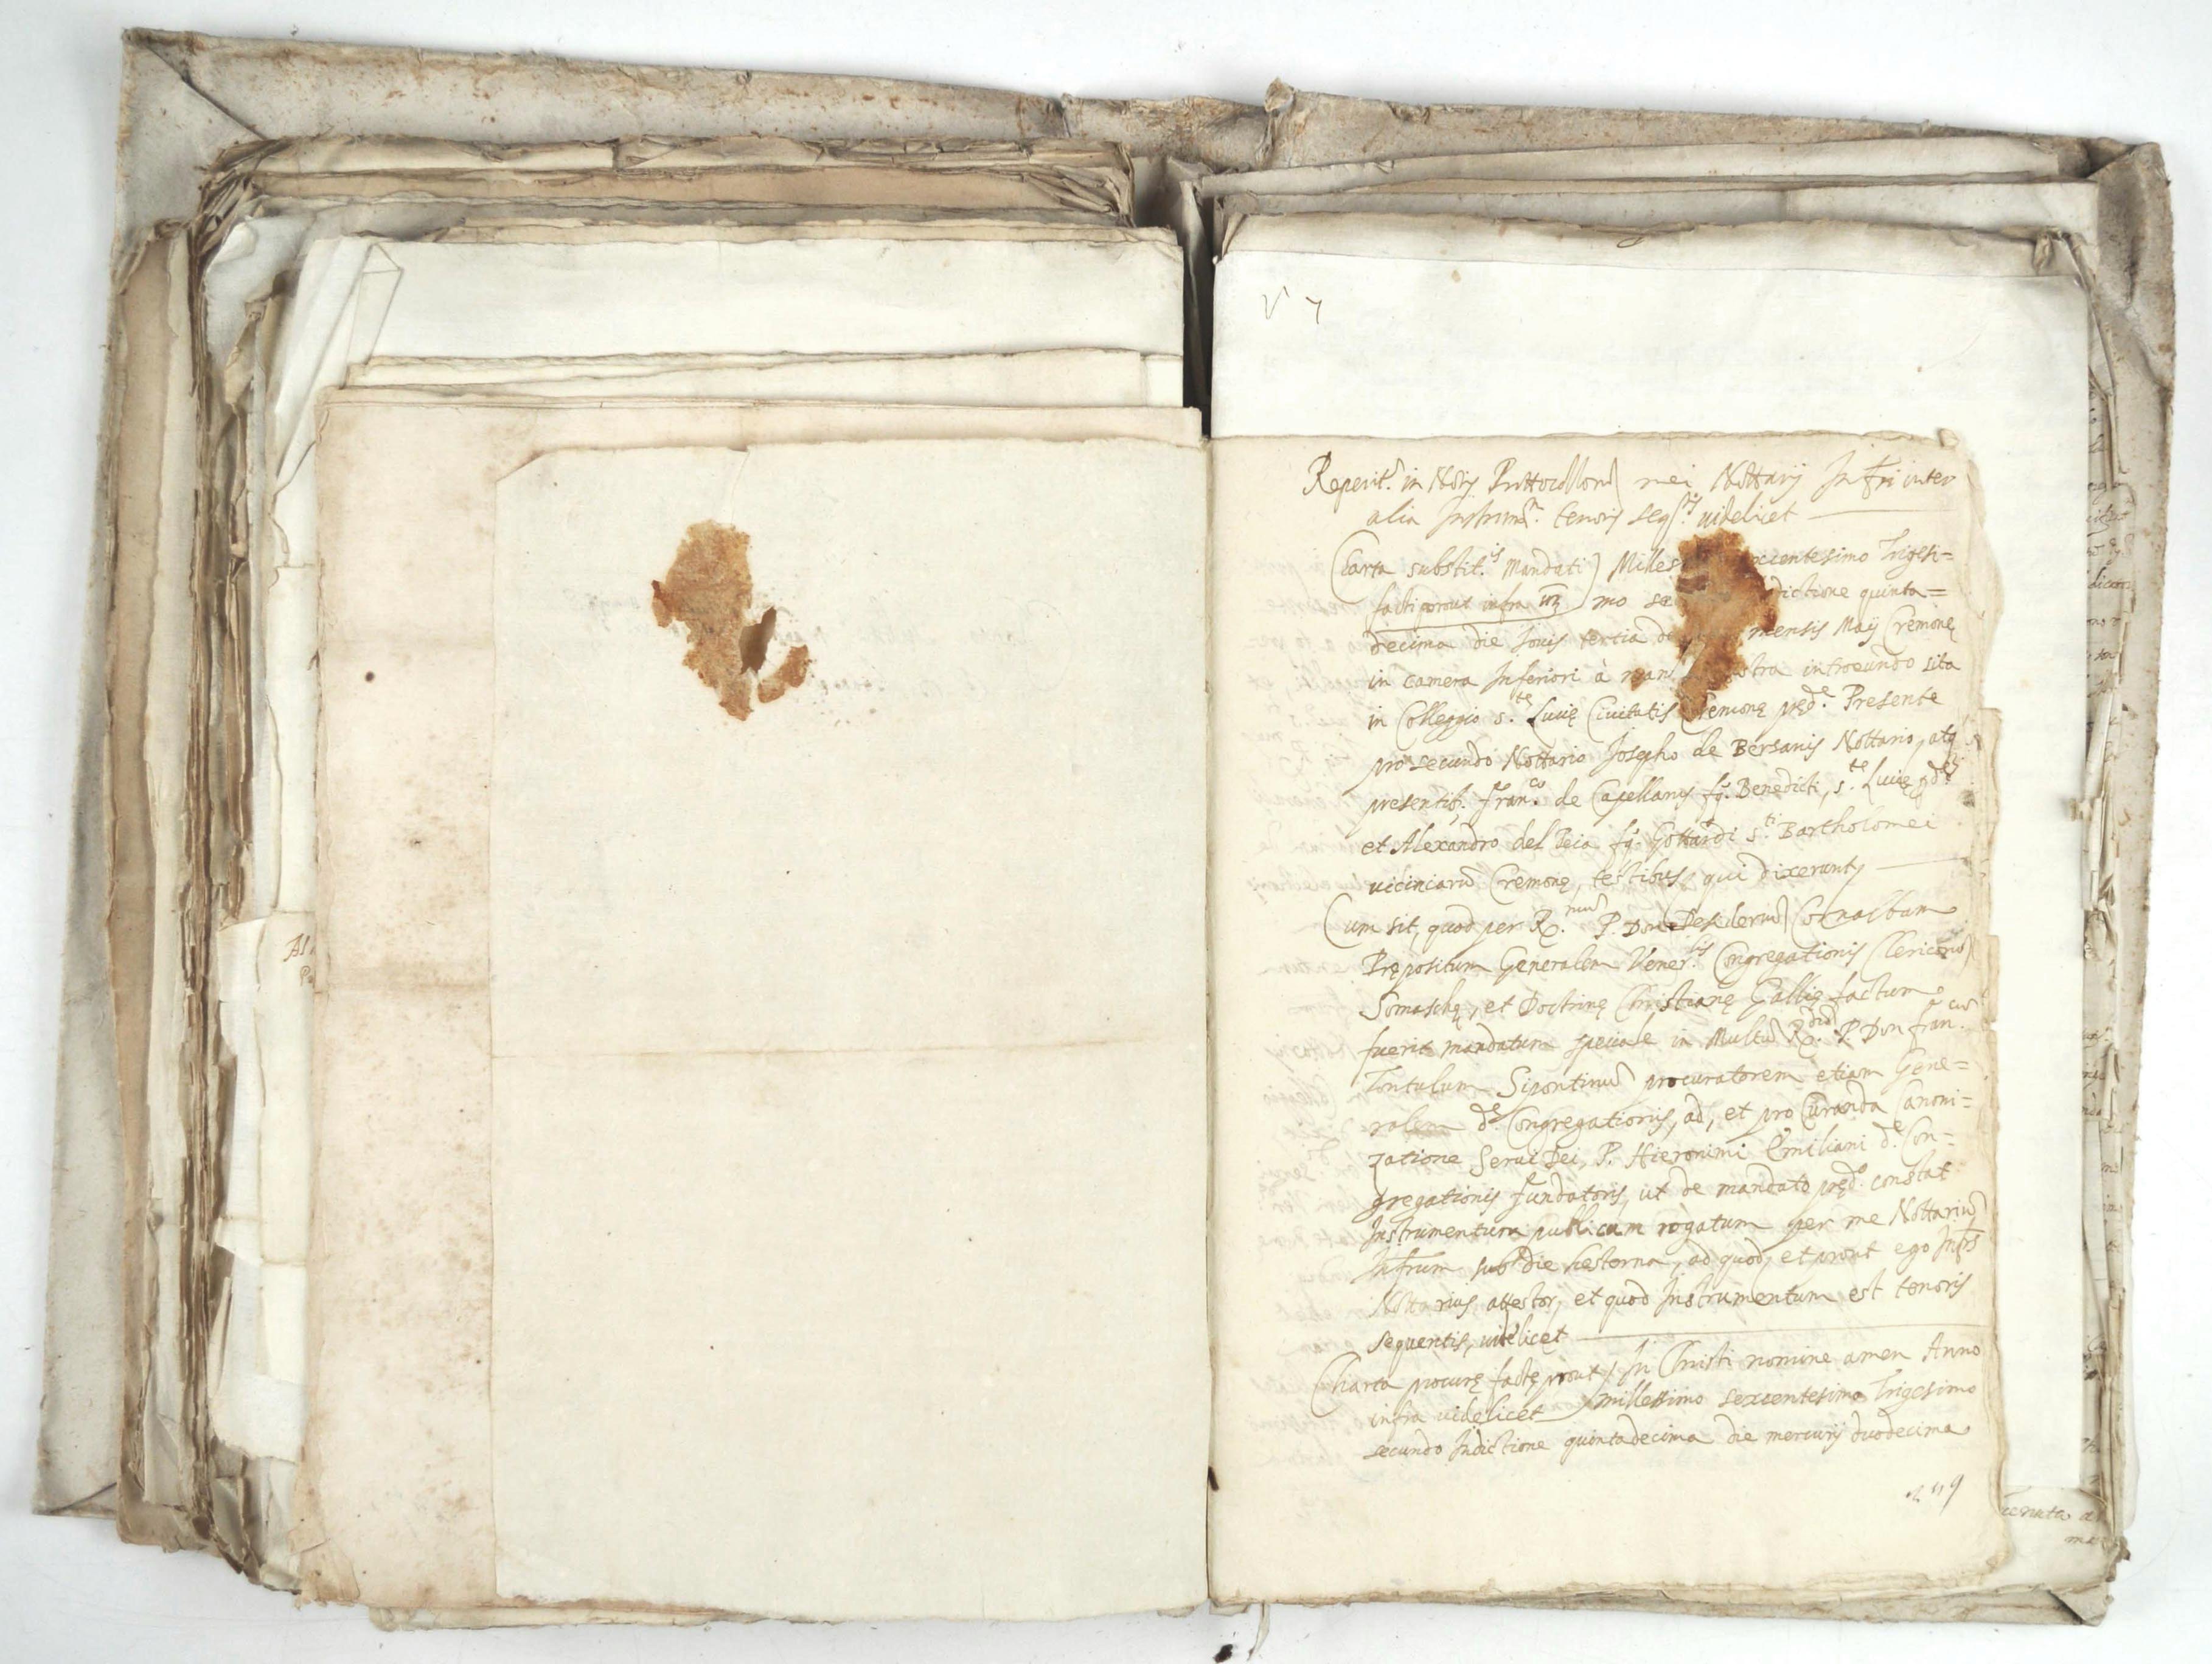 Reperit. in Nõis Prottocollorũ mei Nottarij Infri inter
alia Instrum. tenoris seq. videlicet
Carta substit.is Mandati) Milles centesimo Trigesi=
facti prout infra) mo se dictione quinta=
decima die Jouis tertia de mensis Maij Cremonę
in camera Inferiori à man stra introeundo sita
in Colleggio s.tę Lucię Ciuitatis Cremonę pręd.ę Presente
pro secundo Nottario Josepho de Bersanis Nottario, atq
presentib. Fran.co de Capellanis fq. Benedicti, s.tę Lucię
et Alexandro del fq. Gottardi s.ti Bartholomei
viciniarũ Cremonę, testibus, qui dixerunt,
Cum sit, quod per R.mũ P. Don Desideriũ Cornalbam
Prępositum Generalem Vener.lis Congregationis Clericorũ
Somaschę, et Doctrinę Christianę Gallię factum
fuerit mandatum speciale in Multũ R.dũ P. Don Fran.cũ
Tontulum Sipontinũ procuratorem etiam Gene=
ralem d.ę Congregationis, ad, et pro Curanda Canoni=
zatione Serui Dei, P. Hieronimi Emiliani d.ę Con=
gregationis fundatoris, ut de mandato pręd.o constat
Instrumentum publicum rogatum per me Nottariũ
Infrum sub die hesterna, ad quod, et prout ego Infrs
Nottarius attestor, et quod Instrumentum est tenoris
sequentis, videlicet
Charta procurę factę prout) In Christi nomine amen Anno
infra videlicet millessimo sexcentesimo Trigesimo
secundo Indictione quintadecima die mercurij duodecima